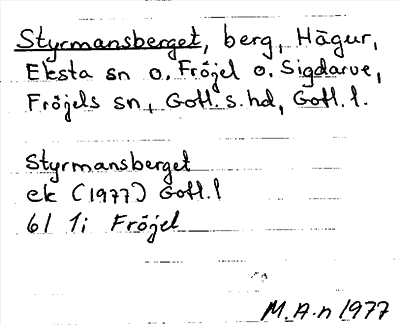 Styrmansberget, berg, Hägur,
Eksta sn o. Fröjel o. Sigdarve,
Fröjels sn, Gotl. s. hd, Gotl. l.
Styrmansberget
ek (1977) Gotl. l
6I 1i Fröjel
M. A-n 1977